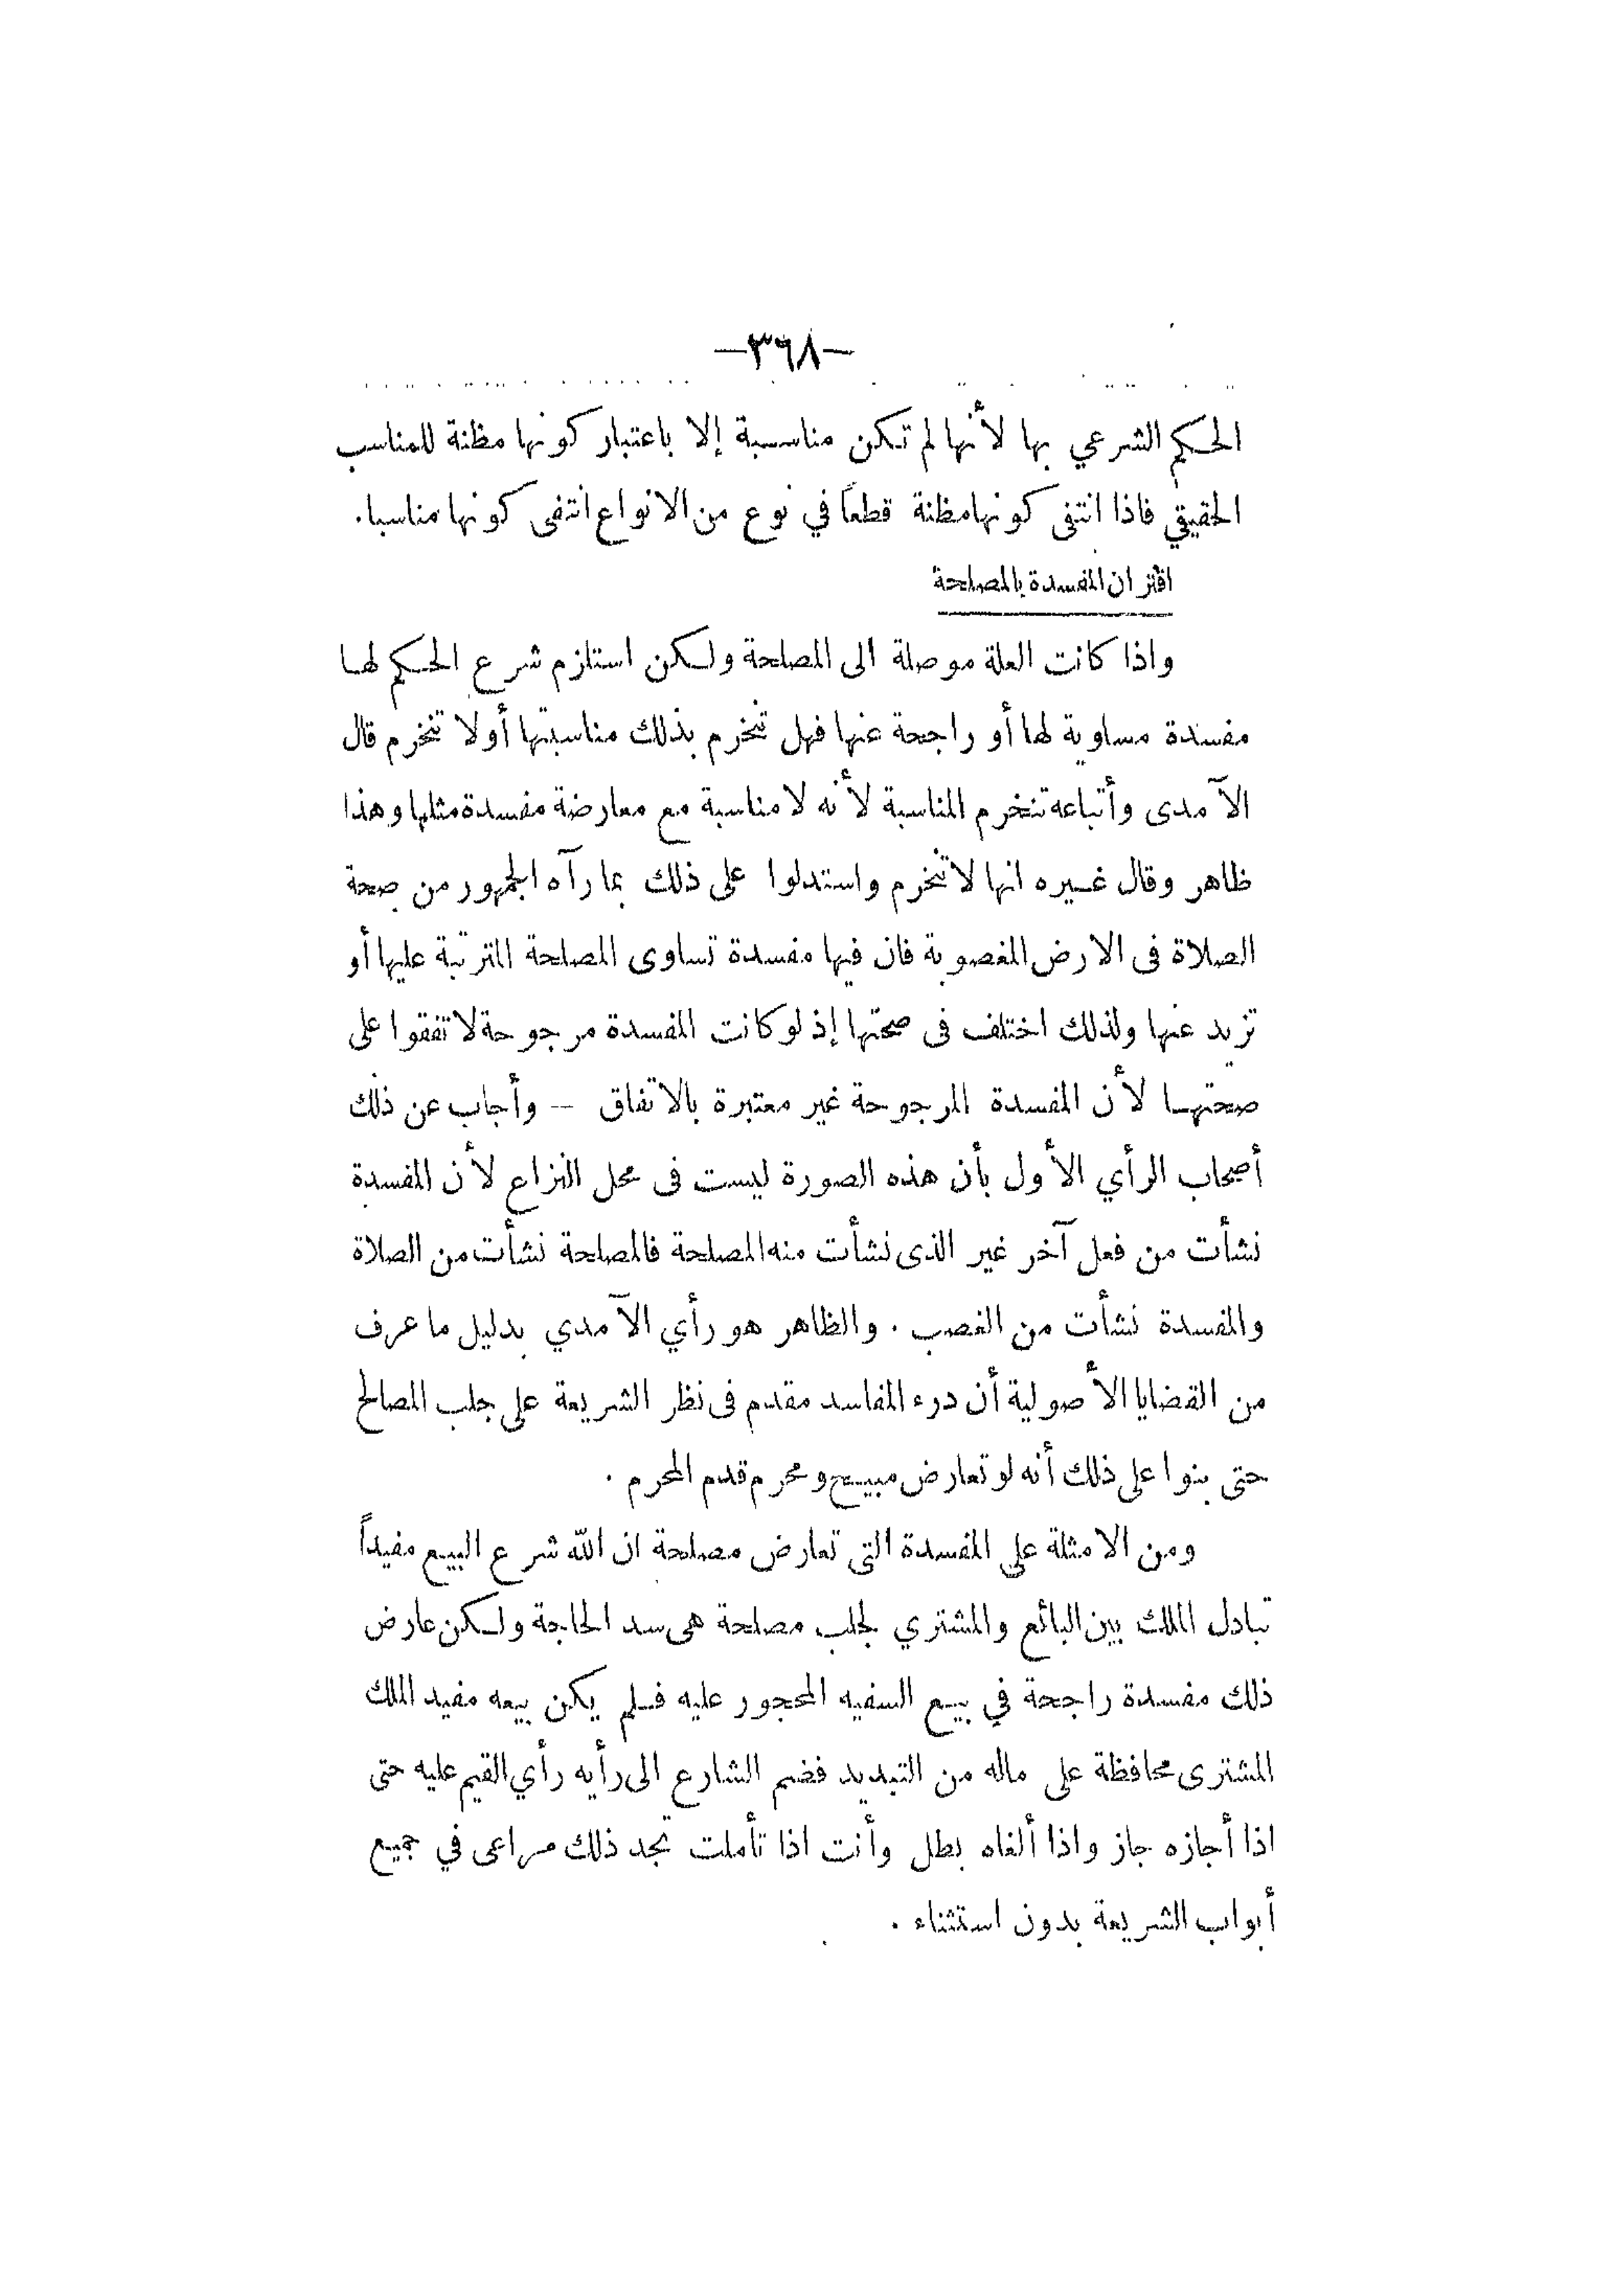 —٣٦٨—
الحكم الشرعي بها لأنها لم تكن مناسبة إلا باعتبار كونها مظنة للمناسب
الحقيقي فاذا انتفى كونها مظنة قطعاً في نوع من الانواع انتفى كونها مناسبا.
اقتران المفسدة بالمصلحة
واذا كانت العلة موصلة الى المصلحة ولكن استلزم شرع الحكم لها
مفسدة مساوية لها أو راجحة عنها فهل تنخرم بذلك مناسبتها أو لا تنخرم قال
الآمدى وأتباعه تنخرم المناسبة لأنه لا مناسبة مع معارضة مفسدة مثلها وهذا
ظاهر وقال غيره انها لا تنخرم واستدلوا على ذلك بما رآه الجمهور من صحة
الصلاة فى الارض المغصوبة فان فيها مفسدة تساوى المصلحة المترتبة عليها أو
تزيد عنها ولذلك اختلف فى صحتها إذ لو كانت المفسدة مرجوحة لاتفقوا على
صحتها لأن المفسدة المرجوحة غير معتبرة بالاتفاق -- وأجاب عن ذلك
أصحاب الرأي الأول بأن هذه الصورة ليست فى محل النزاع لأن المفسدة
نشأت من فعل آخر غير الذى نشأت منه المصلحة فالمصلحة نشأت من الصلاة
والمفسدة نشأت من الغصب . والظاهر هو رأي الآمدي بدليل ما عرف
من القضايا الأصولية أن درء المفاسد مقدم فى نظر الشريعة على جلب المصالح
حتى بنوا على ذلك أنه لو تعارض مبيح ومحرم قدم المحرم .
ومن الامثلة على المفسدة التى تعارض مصلحة ان الله شرع البيع مفيداً
تبادل الملك بين البائع والمشتري لجلب مصلحة هى سد الحاجة ولكن عارض
ذلك مفسدة راجحة في بيع السفيه المحجور عليه فلم يكن بيعه مفيد الملك
المشترى محافظة على ماله من التبديد فضم الشارع الى رأيه رأي القيم عليه حتى
اذا أجازه جاز واذا ألغاه بطل وأنت اذا تأملت تجد ذلك مراعى في جميع
أبواب الشريعة بدون استثناء .